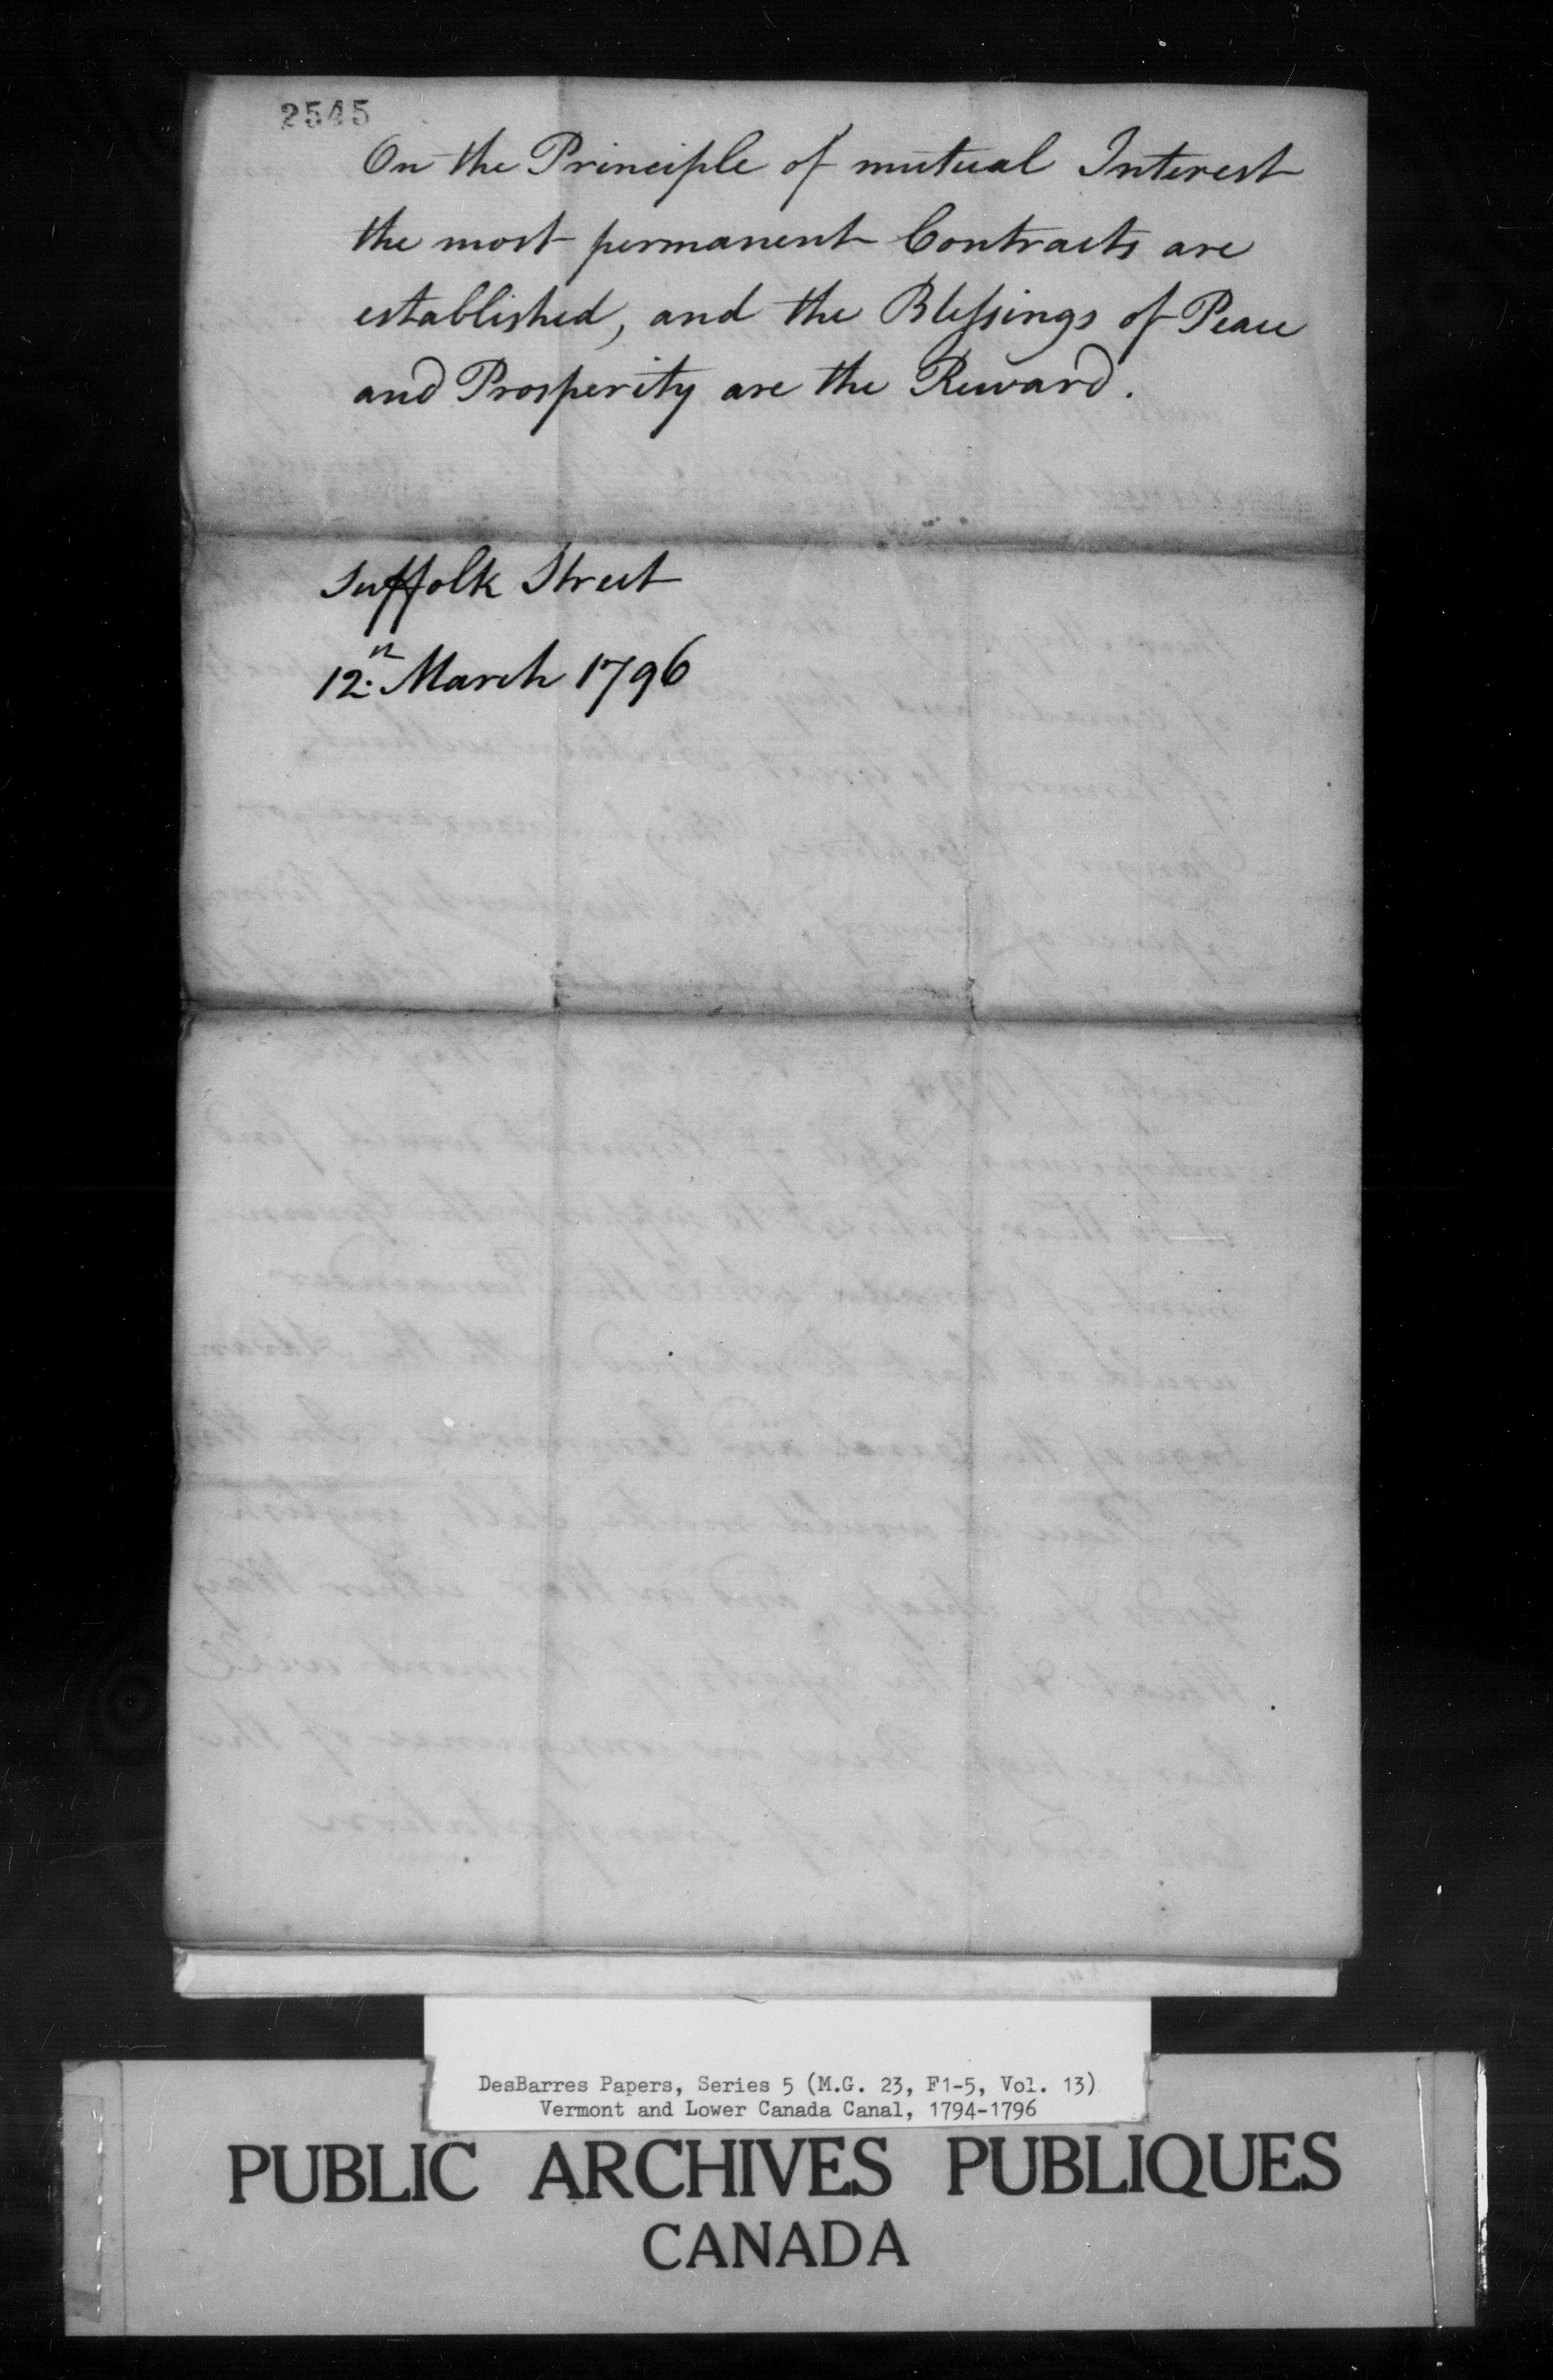 2545
On the Principle of mutual Interest
the most permanent Contracts are
established, and the Blessings of Peace
and Prosperity are the Reward.
Suffolk Street
12th March 1796
DesBarres Papers, Series 5 (M.G. 23, F1-5, Vol. 13)
Vermont and Lower Canada Canal, 1794-1796
PUBLIC ARCHIVES PUBLIQUES
CANADA